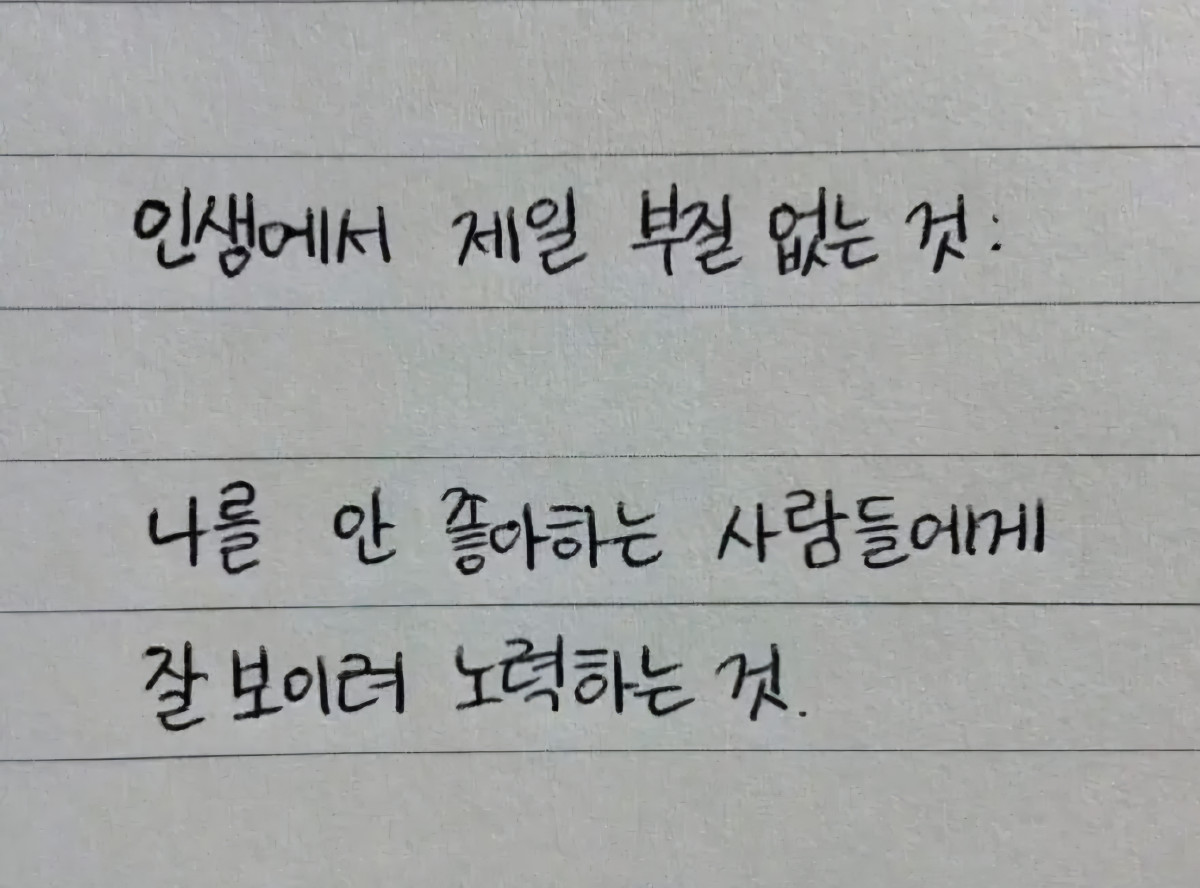 인생에서 제일 부질 없는 것:
나를 안 좋아하는 사람들에게
잘 보이려 노력하는 것.